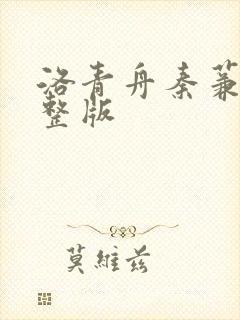 洛青舟秦蒹
整版
莫維茲